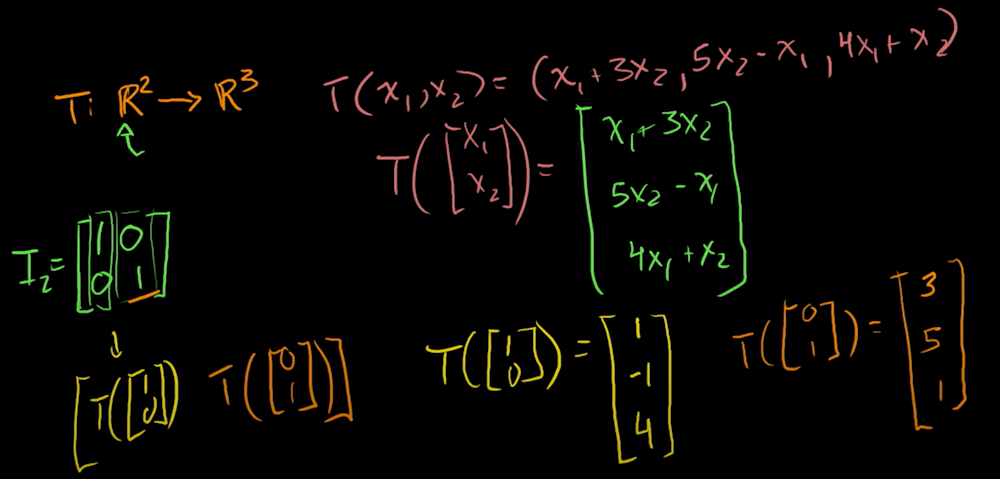 T: ℝ² → ℝ³
T(x₁, x₂) = (x₁ + 3x₂, 5x₂ - x₁, 4x₁ + x₂)
T([x₁; x₂]) = [x₁ + 3x₂; 5x₂ - x₁; 4x₁ + x₂]
I₂ = [1 0; 0 1]
[T([1; 0]) T([0; 1])]
T([1; 0]) = [1; -1; 4]
T([0; 1]) = [3; 5; 1]